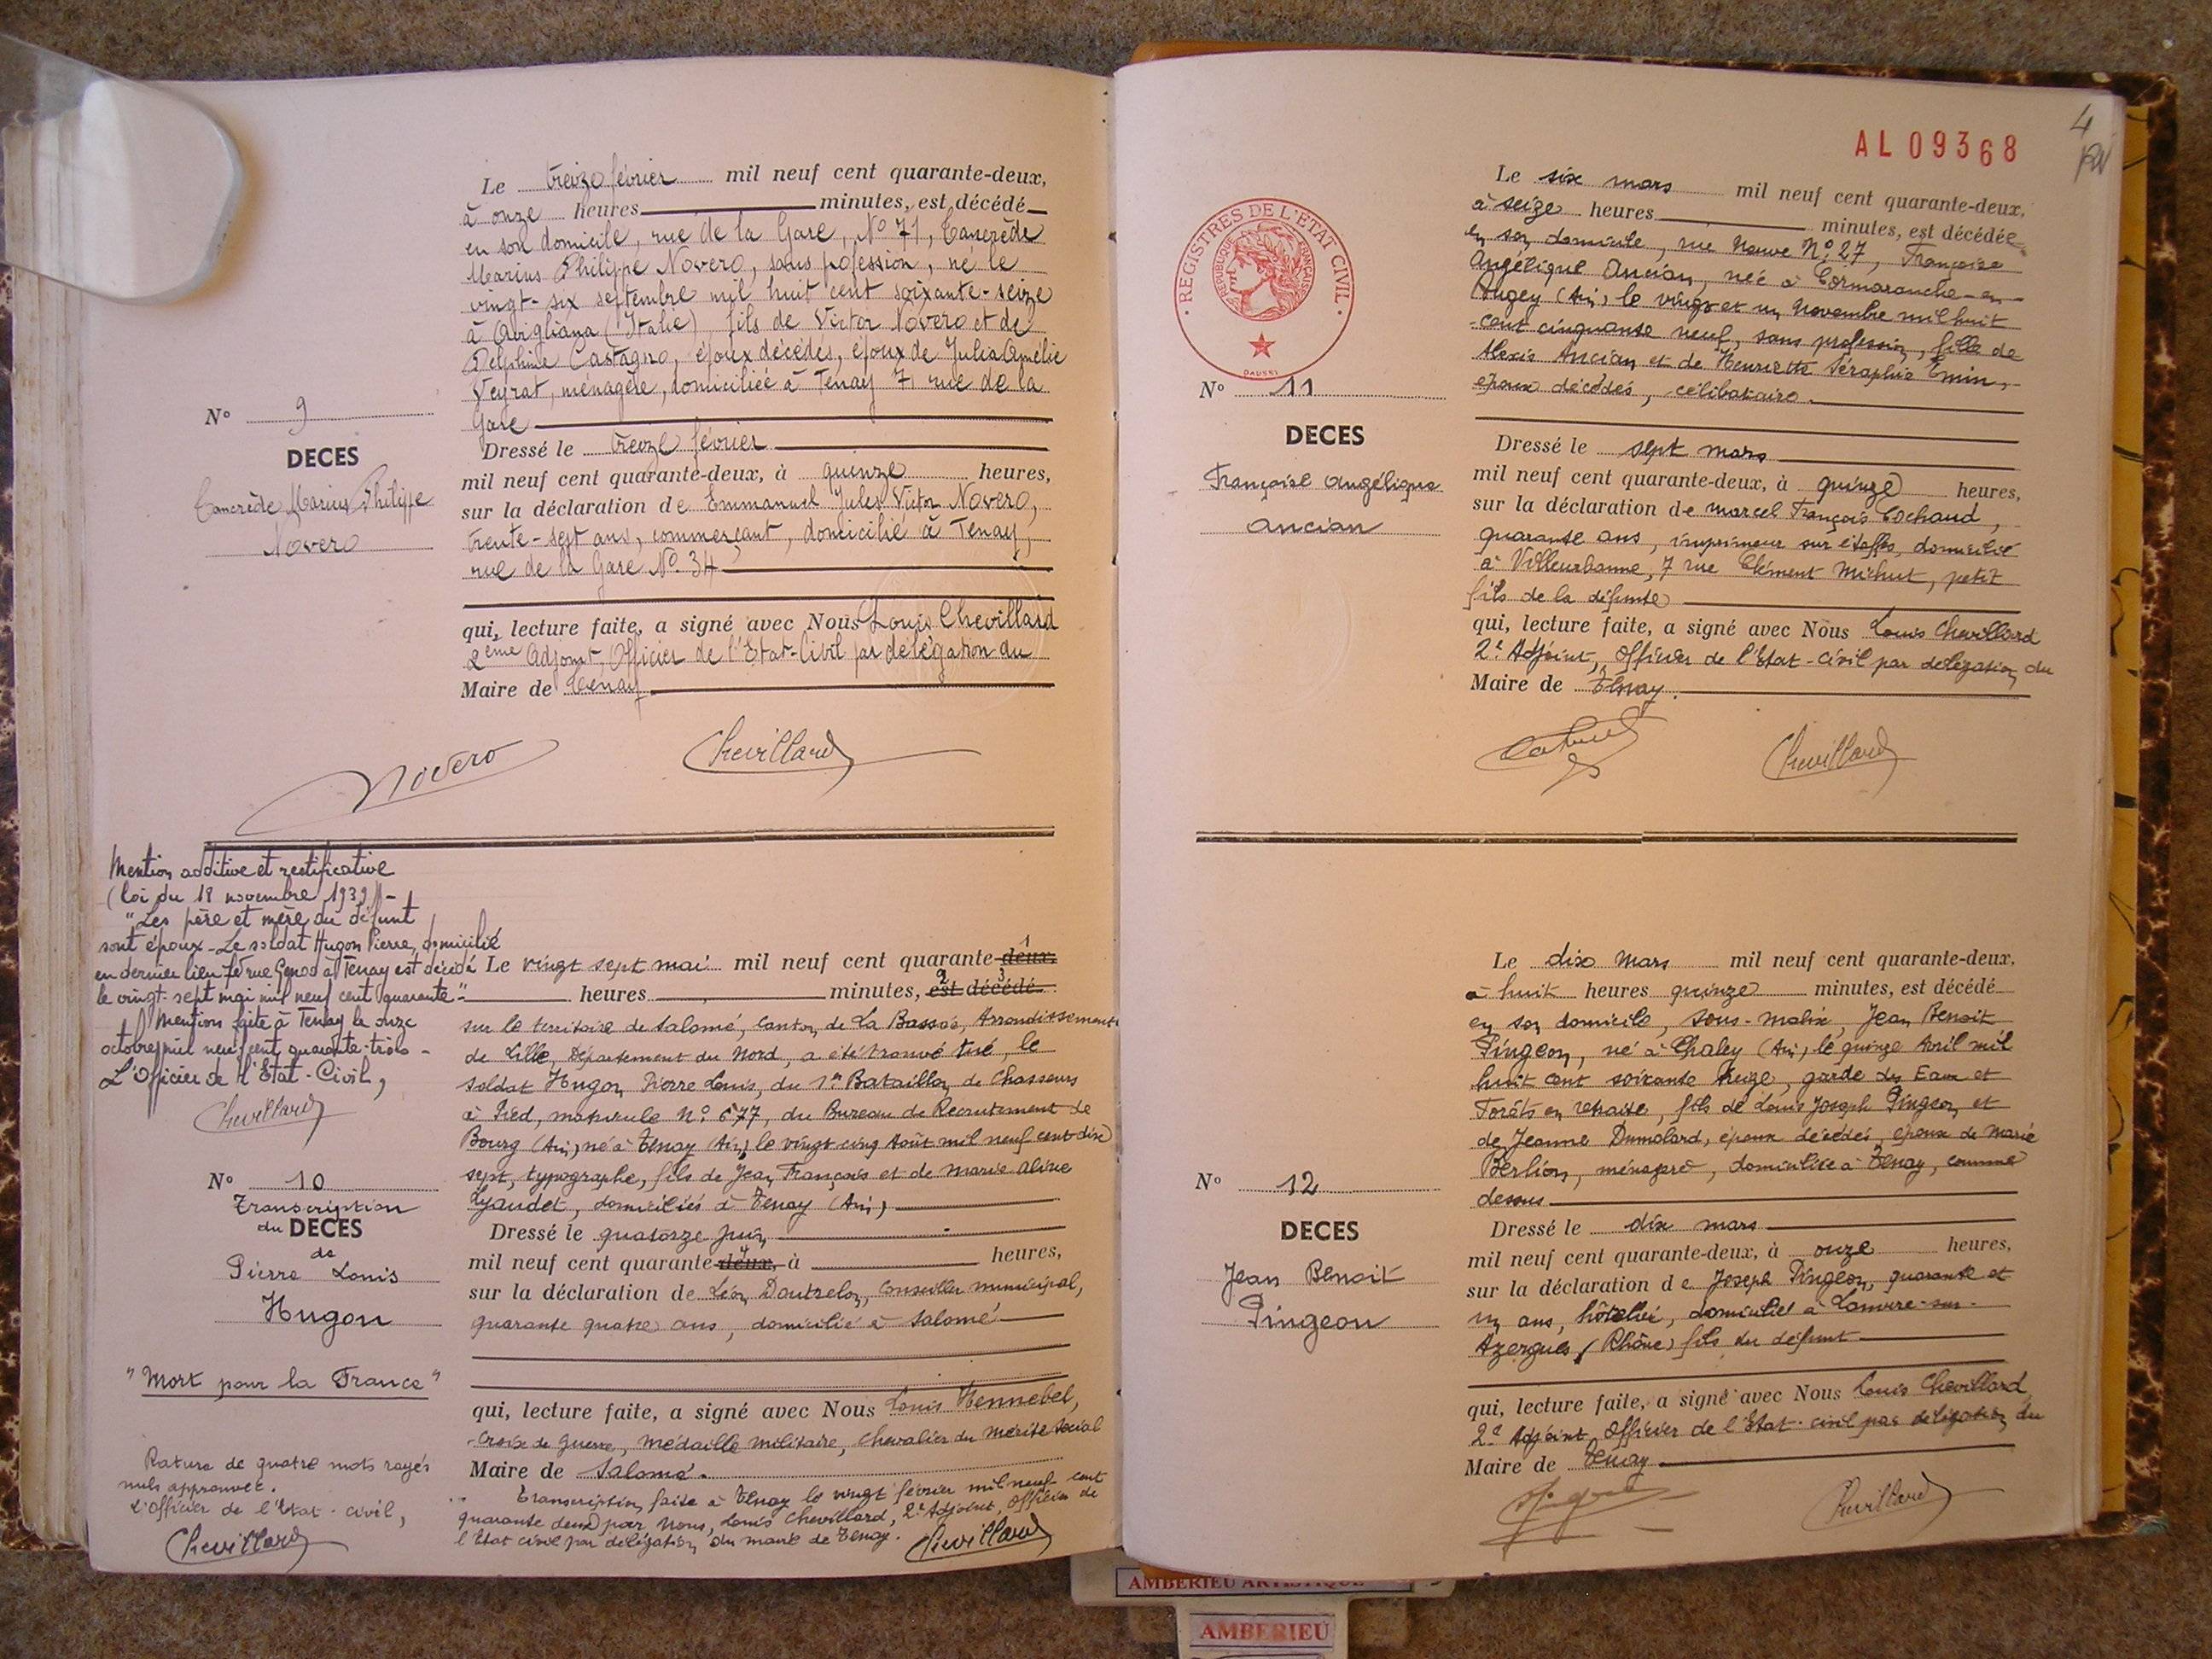 Le treize février mil neuf cent quarante-deux,
à onze heures minutes, est décédé
en son domicile, rue de la Gare, N° 71, Tancrède
Marius Philippe Novero, sans pofession, né le
vingt-six septembre mil huit cent soixante-seize
à Avigliana (Italie), fils de Victor Novero et de
Delphine Castagno, époux décédés, époux de Julia Amélie
Veyrat, ménagère, domiciliée à Tenay 71 rue de la
Gare
N° 9
DECES
Tancrède Marius Philippe
Novero
Dressé le treize février
mil neuf cent quarante-deux, à quinze heures,
sur la déclaration de Emmanuel Jules Victor Novero,
trente-sept ans, commerçant, domicilié à Tenay,
rue de la Gare N° 34
qui, lecture faite, a signé avec Nous Louis Chevillard
2ème Adjoint, Officier de l'Etat-Civil par délégation du
Maire de Tenay
Novero Chevillard
Mention additive et rectificative
(loi du 18 novembre 1939) -
"Les père et mère du défunt
sont époux - Le soldat Hugon Pierre, domicilié
en dernier lieu rue à Tenay est décédé
le vingt-sept mai mil neuf cent quarante".
Mention faite à Tenay le onze
octobre mil neuf cent quarante-trois -
L'Officier de l'Etat-Civil,
Chevillard
N° 10
Transcription
du DECES
de
Pierre Louis
Hugon
"Mort pour la France"
Rature de quatre mots rayés
nuls approuvée.
L'Officier de l'Etat-civil,
Chevillard
Le vingt sept mai mil neuf cent quarante-deux,
heures minutes, est décédé
sur le territoire de Salomé, Canton de La Bassée, Arrondissement
de Lille, Département du Nord, a été trouvé tué, le
soldat Hugon Pierre Louis, du 1er Bataillon de Chasseurs
à Pied, matricule N° 677, du Bureau de Recrutement de
Bourg (Ain) né à Tenay (Ain) le vingt cinq Août mil neuf cent dix
sept, typographe, fils de Jean François et de Marie Aline
Lyaudet, domiciliés à Tenay (Ain)
Dressé le quatorze Juin
mil neuf cent quarante-deux, à heures,
sur la déclaration de Léon Doutrelon, Conseiller municipal,
quarante quatre ans, domicilié à Salomé
qui, lecture faite, a signé avec Nous Louis Hennebel,
Croix de Guerre, Médaille Militaire, Chevalier du Mérite Social
Maire de Salomé.
Transcription faite à Tenay le vingt février mil neuf cent
quarante deux par Nous, Louis Chevillard, 2e Adjoint, Officier de
l'Etat civil par délégation du maire de Tenay. Chevillard
4
AL 09368
REGISTRES DE L'ETAT CIVIL
REPUBLIQUE FRANÇAISE
DAUSSY
Le six mars mil neuf cent quarante-deux,
à seize heures minutes, est décédée
en son domicile, rue Neuve N° 27, Françoise
Angélique Ancian, née à Cormaranche-en-
Bugey (Ain) le vingt et un Novembre mil huit
cent cinquante neuf, sans profession, fille de
Alexis Ancian et de Henriette Séraphie Emin,
époux décédés, célibataire.
N° 11
DECES
Françoise Angélique
Ancian
Dressé le sept mars
mil neuf cent quarante-deux, à quinze heures,
sur la déclaration de Marcel François Cochaud,
quarante ans, imprimeur sur étoffes, domicilié
à Villeurbanne, 7 rue Clément Michut, petit
fils de la défunte
qui, lecture faite, a signé avec Nous Louis Chevillard
2e Adjoint, Officier de l'Etat-civil par délégation du
Maire de Tenay.
Chevillard
Le dix mars mil neuf cent quarante-deux,
à huit heures quinze minutes, est décédé
en son domicile, Sous-Malix, Jean Benoit
Pingeon, né à Chaley (Ain) le quinze Avril mil
huit cent soixante treize, garde des Eaux et
Forêts en retraite, fils de Louis Joseph Pingeon et
de Jeanne Dumolard, époux décédés, époux de Marie
Berlion, ménagère, domiciliée à Tenay, comme
dessus
N° 12
DECES
Jean Benoit
Pingeon
Dressé le dix mars
mil neuf cent quarante-deux, à onze heures,
sur la déclaration de Joseph Pingeon, quarante et
un ans, hôtelier, domicilié à Lamure-sur-
Azergues (Rhône) fils du défunt
qui, lecture faite, a signé avec Nous Louis Chevillard
2e Adjoint, Officier de l'Etat-civil par délégation du
Maire de Tenay
Pingeon Chevillard
AMBERIEU ARTISTIQUE
AMBERIEU